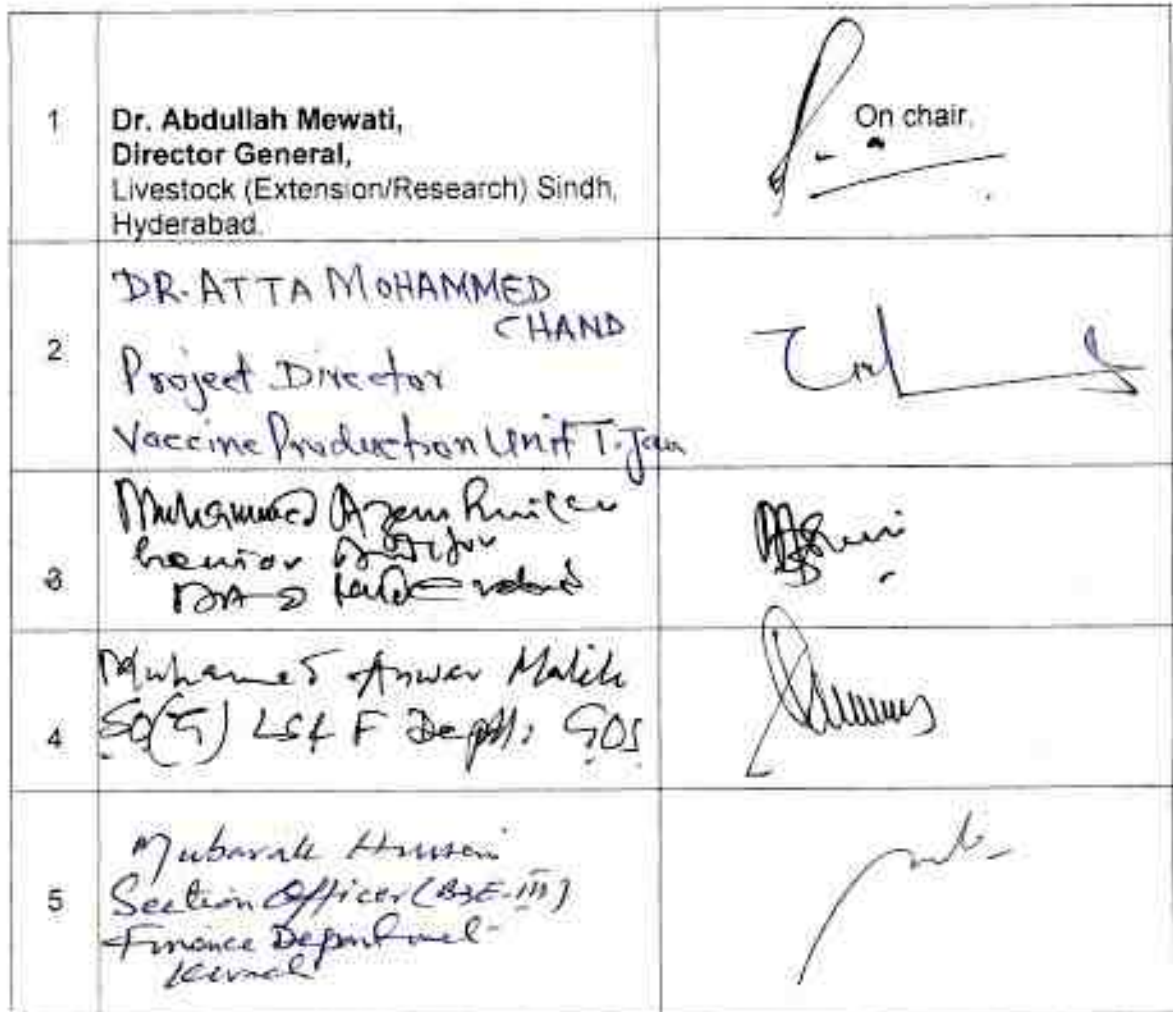 1
Dr. Abdullah Mewati,
Director General,
Livestock (Extension/Research) Sindh,
Hyderabad.
On chair.
2
DR. ATTA MOHAMMED
CHAND
Project Director
Vaccine Production Unit T. Jam
3
Muhammed Azem
4
Muhammed Anwar Malik
SO(G) LS& F Deptt: GOS
5
Mubarak Hussain
Section Officer (B&E-III)
Finance Department